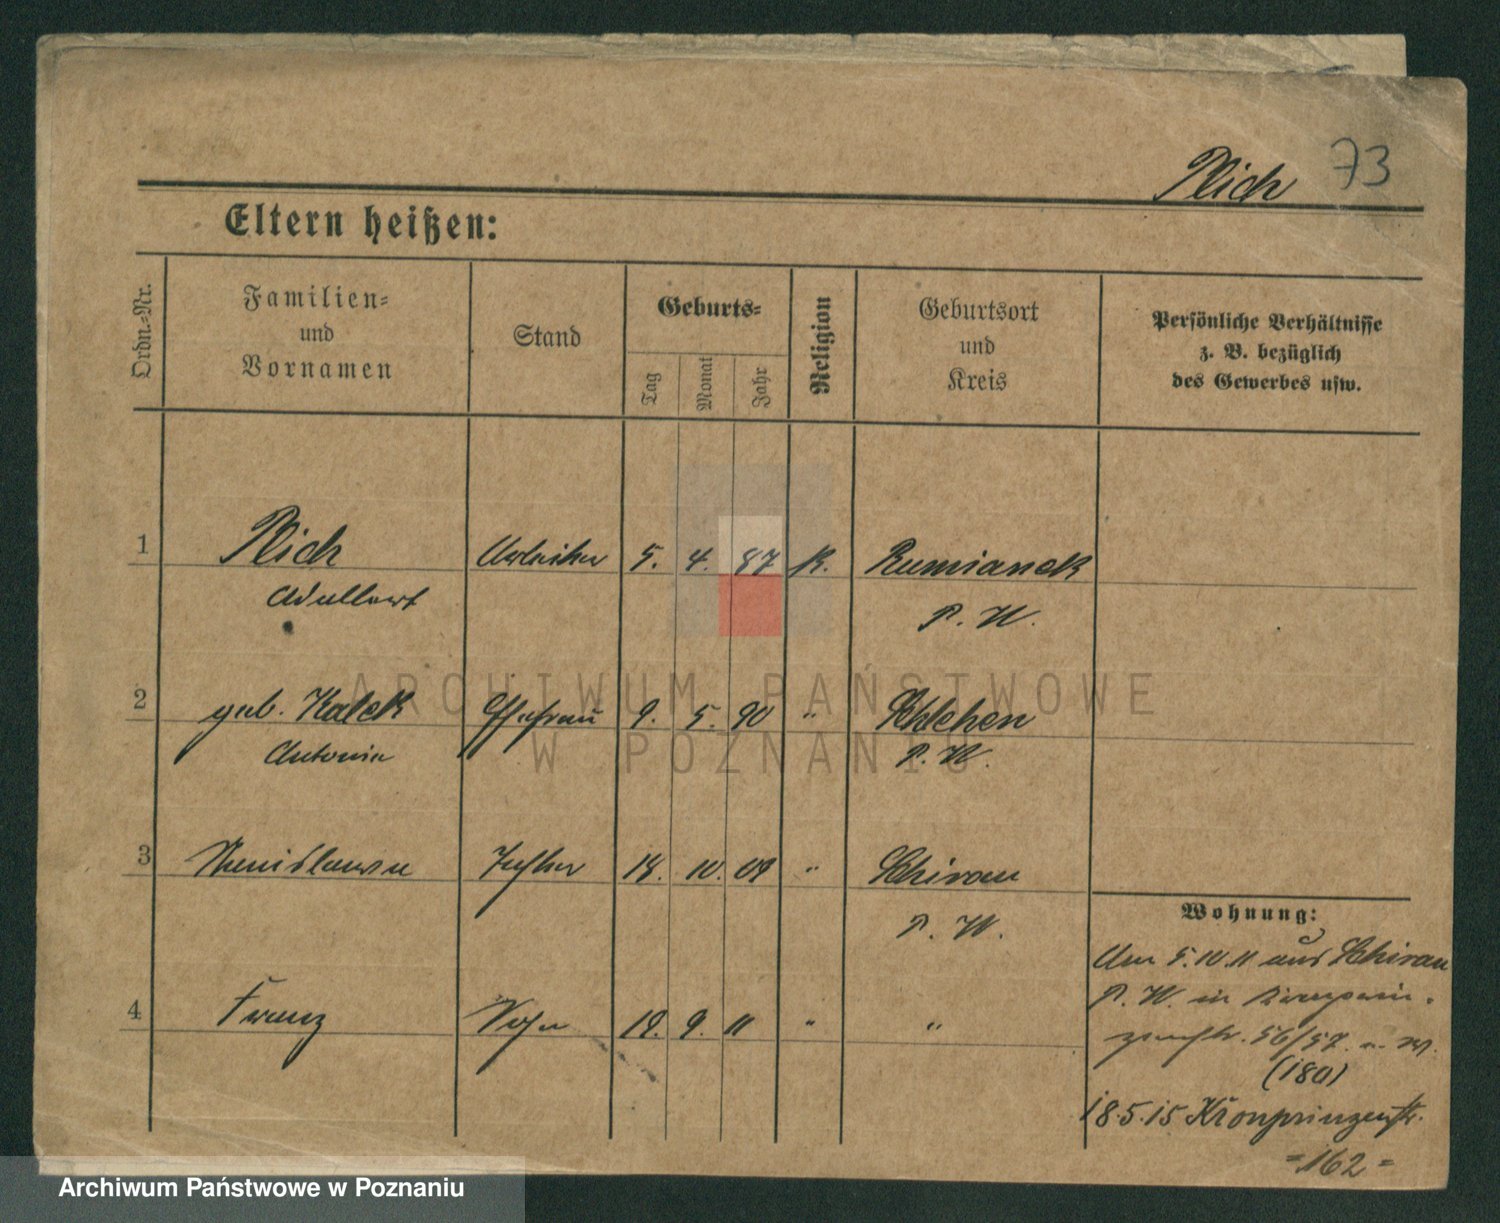 Plich 73
Eltern heißen:
Ordn.-Nr.
Familien-
und
Vornamen
Stand
Geburts-
Tag
Monat
Jahr
Religion
Geburtsort
und
Kreis
Persönliche Verhältnisse
z. B. bezüglich
des Gewerbes usw.
1 Plich Arbeiter 5. 4. 87 K. Rumianek
Adalbert P. W.
2 geb. Kalek Ehefrau 9. 5. 90 " Schlehen
Antonia P. W.
3 Stanislawa Tochter 18. 10. 09 " Schirau
P. W.
4 Franz Sohn 19. 9. 11 " "
Wohnung:
Am 5.10.11 aus Schirau
P. W. in
56/57
(180)
18.5.15 Kronprinzenstr.
=162=
ARCHIWUM PAŃSTWOWE
W POZNANIU
Archiwum Państwowe w Poznaniu